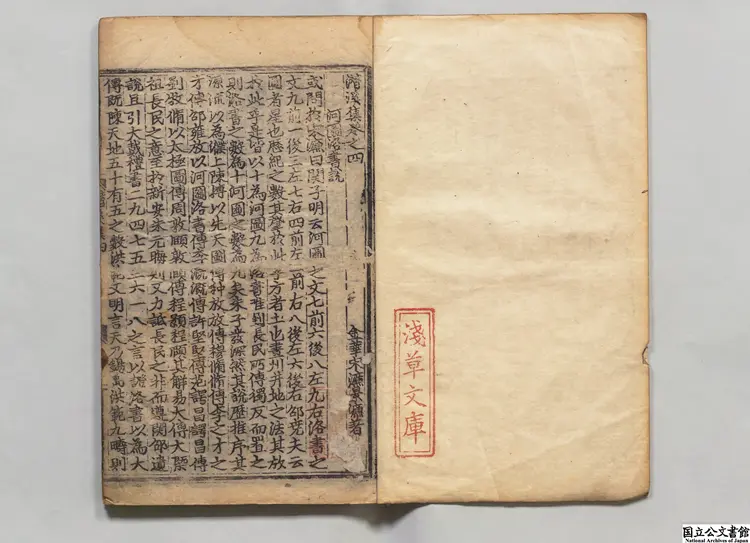 淺草文庫
潛溪集卷之四
金華宋濂景濂著
河圖洛書說
或問於宋濂曰關子明云河圖之文七前六後八左九右洛書之
文九前一後三左七右四前左二前右八後左六後右邵堯夫云
圖者星也曆紀之數其肇於此乎方者土也畫州井地之法其放
於此乎是皆以十為河圖九為洛書惟劉長民所傳獨反而置之
則洛書之數為十河圖之數為九矣朱子發深然其說歷推序其
源流以為濮上陳摶以先天圖傳种放放傳穆脩脩傳李之才之
才傳邵雍放以河圖洛書傳李溉溉傳許堅堅傳范諤昌諤昌傳
劉牧脩以太極圖傳周敦頤敦頤傳程顥程頤其解易大傳大槩
祖長民之意至於新安朱元晦則又力詆長民之非而遵關邵遺
說且引大戴禮書二九四七五三六一八之言以證洛書以為大
傳既陳天地五十有五之數洪範又明言天乃錫禹洪範九疇則
国立公文書館
National Archives of Japan